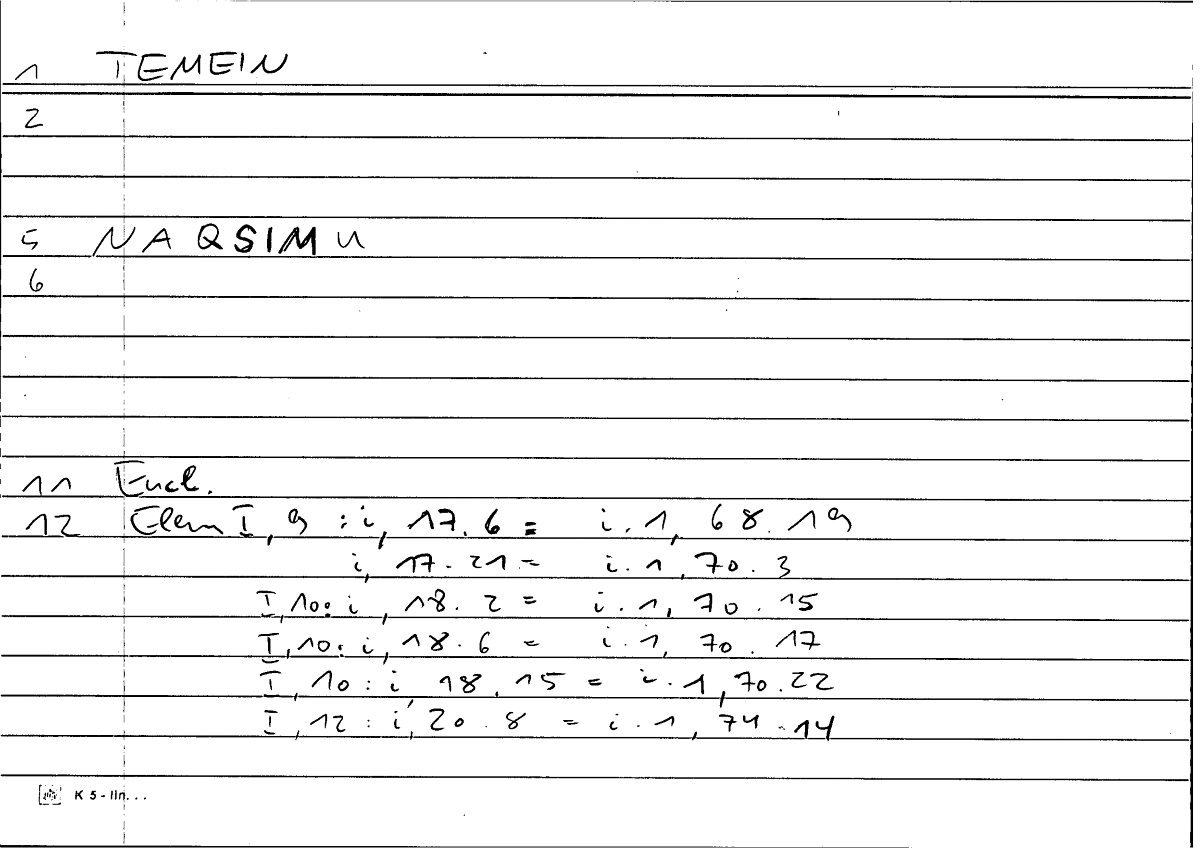 1 TEMEIN
2
5 NAQSIMU
6
11 Eucl.
12 Elem I, 9 : i, 17.6 = i.1, 68.19
i, 17.21 = i.1, 70.3
I, 10: i, 18.2 = i.1, 70.15
I, 10: i, 18.6 = i.1, 70.17
I, 10: i, 18.15 = i.1, 70.22
I, 12: i, 20.8 = i.1, 74.14
K 5 - lin...